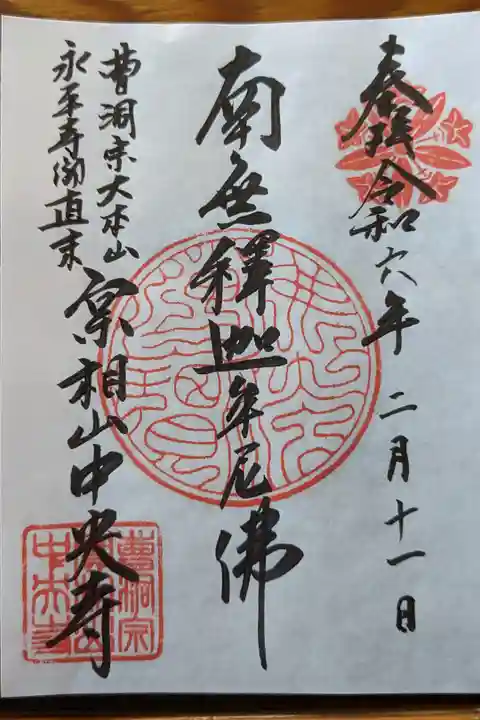 奉拝 令和六年 二月十一日
南無釋迦牟尼佛
曹洞宗大本山
永平寺御直末
相山中央寺
曹洞宗
中央寺